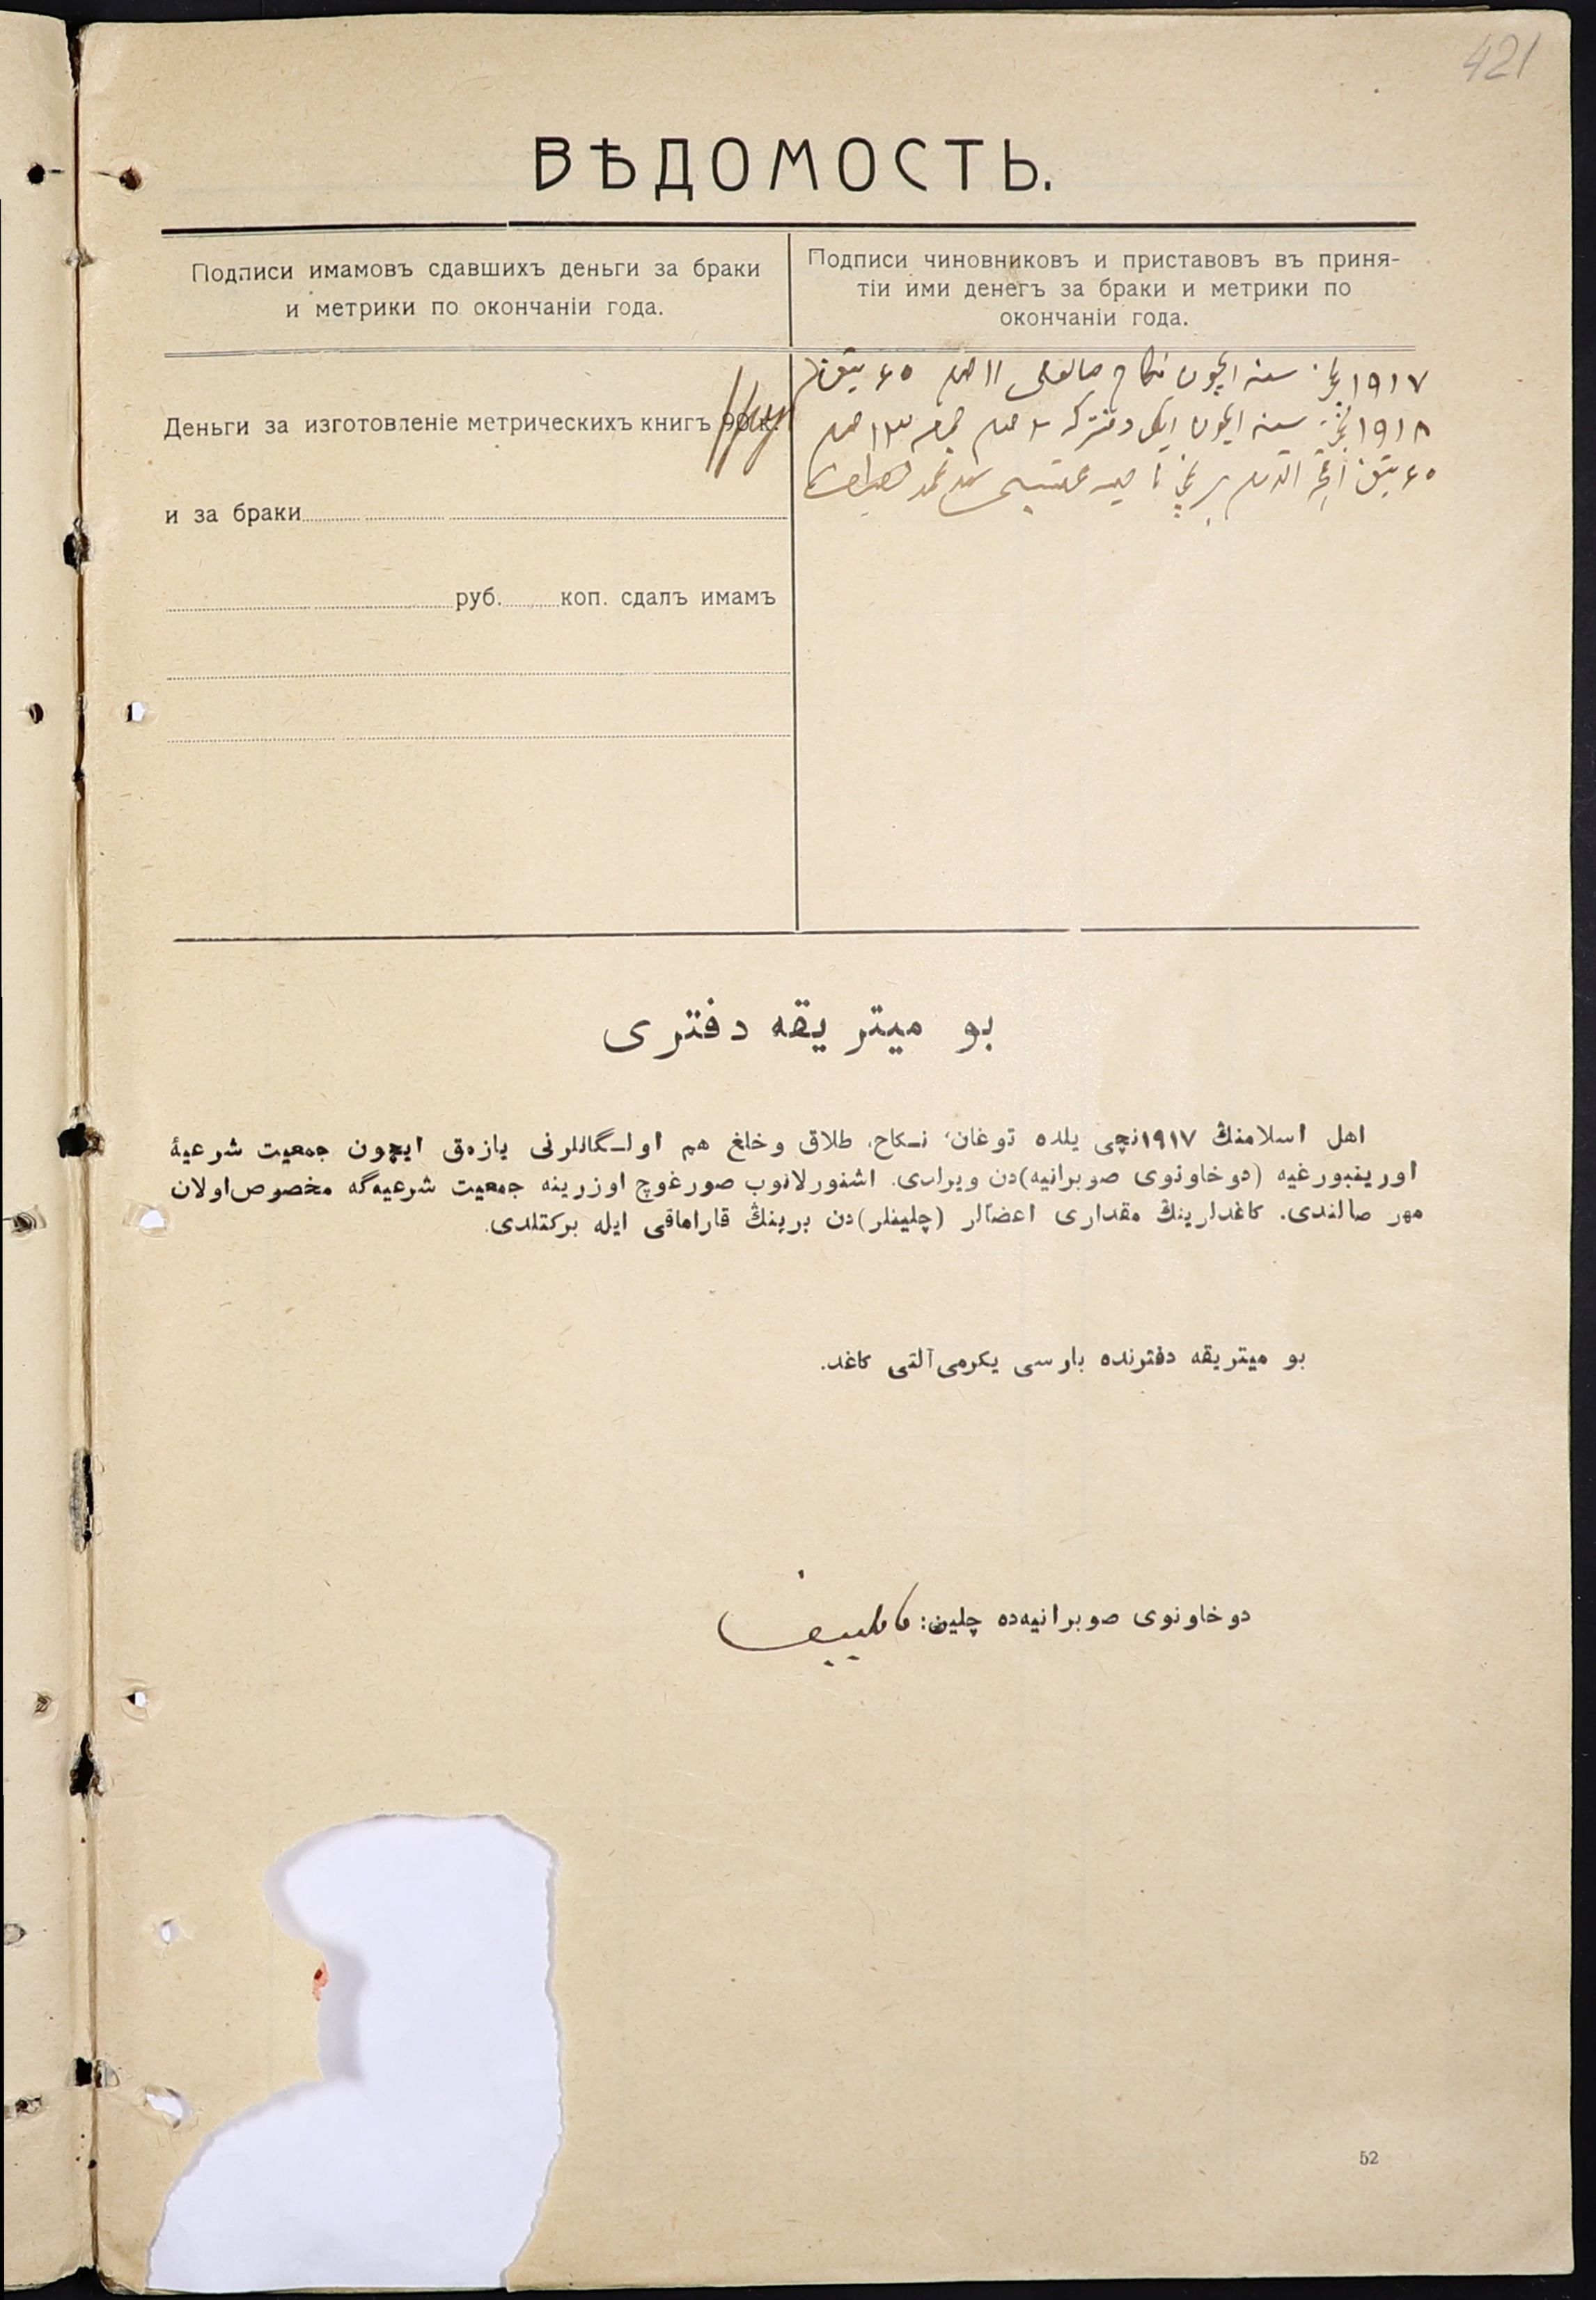 421
ВѢДОМОСТЬ.
Подписи имамовъ сдавшихъ деньги за браки
и метрики по окончаніи года.
Подписи чиновниковъ и приставовъ въ приня-
тіи ими денегъ за браки и метрики по
окончаніи года.
Деньги за изготовленіе метрическихъ книгъ 90 к.
и за браки
руб. коп. сдалъ имамъ
١٩١٧ نچی سنه ایچون نكاح ١١ صوم ٤٥
١٩١٨ نچی سنه ایچون ایكی دفترگه ٢ صوم ١٣ صوم
٤٥
بو ميتريقه دفتری
اهل اسلامنڭ ١٩١٧نچی يلده توغان، نـكاح، طلاق وخلع هم اولـگانلرنی يازمق ايچون جمعيت شرعيۀ
اورينبورغيه (دوخاونوی صوبرانيه)دن ويرلدی. اشنورلانوب صورغوچ اوزرينه جمعيت شرعيه‌گه مخصوص‌اولان
مهر صالندی. كاغدلرينڭ مقداری اعضالر (چلينلر)دن برينڭ قاراماقی ايله بركتلدی.
بو ميتريقه دفترنده بارسی يكرمی‌آلتی كاغد.
دوخاونوی صوبرانيه‌ده چلين:
52